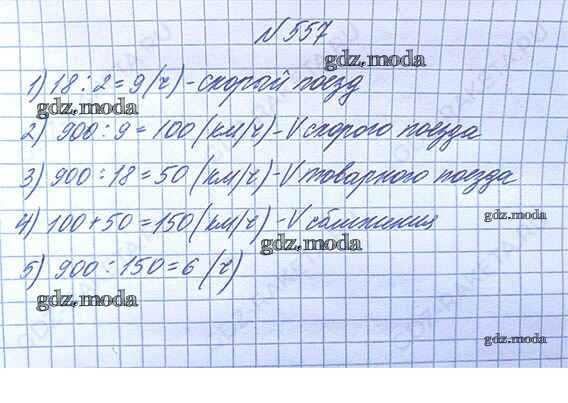 №557
gdz.moda
1) 18 : 2 = 9 (ч) - скорый поезд
gdz.moda
2) 900 : 9 = 100 (км/ч) - V скорого поезда
gdz.moda
3) 900 : 18 = 50 (км/ч) - V товарного поезда
4) 100 + 50 = 150 (км/ч) - V сближения
gdz.moda
gdz.moda
5) 900 : 150 = 6 (ч)
gdz.moda
gdz.moda